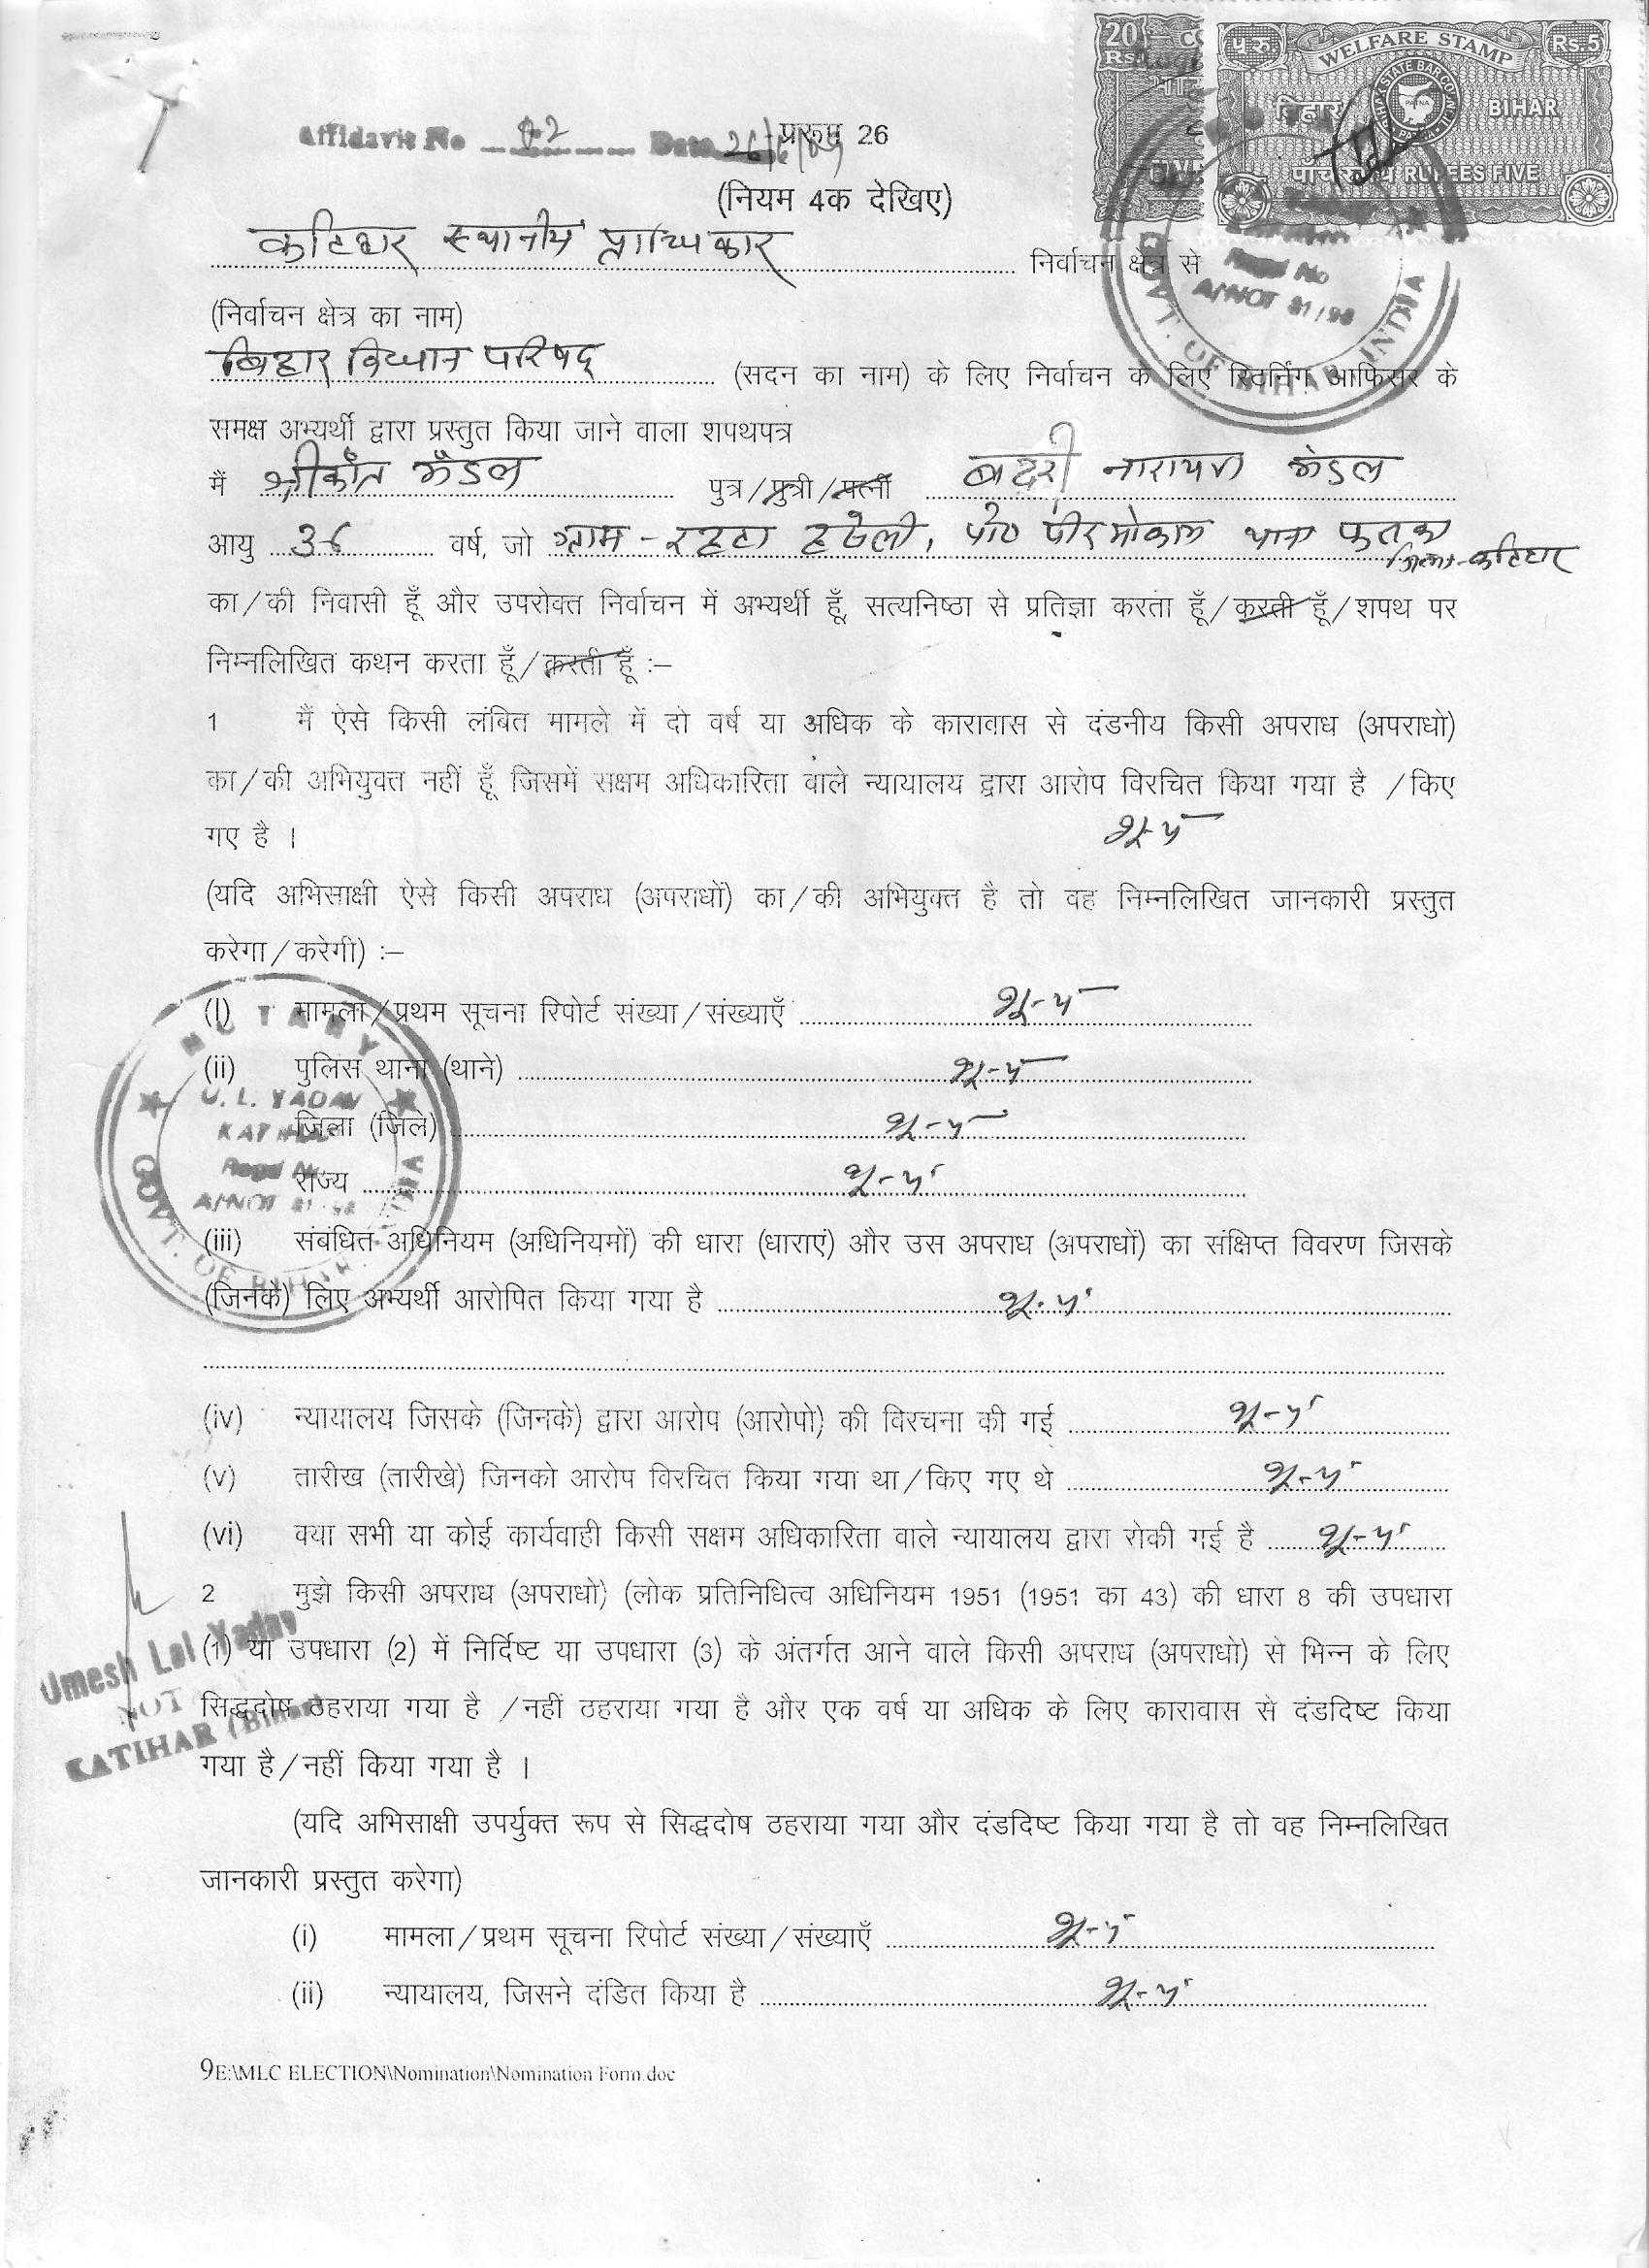 20 Rs
WELFARE STAMP
प रु Rs.5
बिहार BIHAR
BIHAR STATE BAR COUNCIL PATNA
पाँच रुपये RUPEES FIVE
Affidavit No 02 Date 26/6/09
प्ररूप 26
(नियम 4क देखिए)
कटिहार स्थानीय प्राधिकार निर्वाचन क्षेत्र से
Regd No
A/NOT 81/98
GOVT. OF BIHAR INDIA
(निर्वाचन क्षेत्र का नाम)
बिहार विधान परिषद् (सदन का नाम) के लिए निर्वाचन के लिए रिटर्निंग आफिसर के
समक्ष अभ्यर्थी द्वारा प्रस्तुत किया जाने वाला शपथपत्र
मैं श्रीकाँत मंडल पुत्र/पुत्री/पत्नी बद्री नारायण मंडल
आयु 36 वर्ष, जो ग्राम - रहटा हथेली, पो० पीरमोकाम थाना फलका
जिला-कटिहार
का/की निवासी हूँ और उपरोक्त निर्वाचन में अभ्यर्थी हूँ, सत्यनिष्ठा से प्रतिज्ञा करता हूँ/करती हूँ/शपथ पर
निम्नलिखित कथन करता हूँ/करती हूँ :–
1 मैं ऐसे किसी लंबित मामले में दो वर्ष या अधिक के कारावास से दंडनीय किसी अपराध (अपराधो)
का/की अभियुक्त नहीं हूँ जिसमें सक्षम अधिकारिता वाले न्यायालय द्वारा आरोप विरचित किया गया है /किए
गए है । शून्य
(यदि अभिसाक्षी ऐसे किसी अपराध (अपराधों) का/की अभियुक्त है तो वह निम्नलिखित जानकारी प्रस्तुत
करेगा/करेगी) :–
(i) मामला/प्रथम सूचना रिपोर्ट संख्या/संख्याएँ शून्य
(ii) पुलिस थाना (थाने) शून्य
जिला (जिले) शून्य
राज्य शून्य
NOTARY
U. L. YADAV
KATIHAR
Regd No
A/NOT 81/98
GOVT. OF BIHAR INDIA
(iii) संबंधित अधिनियम (अधिनियमों) की धारा (धाराएं) और उस अपराध (अपराधों) का संक्षिप्त विवरण जिसके
(जिनके) लिए अभ्यर्थी आरोपित किया गया है शून्य
(iv) न्यायालय जिसके (जिनके) द्वारा आरोप (आरोपो) की विरचना की गई शून्य
(v) तारीख (तारीखे) जिनको आरोप विरचित किया गया था/किए गए थे शून्य
(vi) क्या सभी या कोई कार्यवाही किसी सक्षम अधिकारिता वाले न्यायालय द्वारा रोकी गई है शून्य
2 मुझे किसी अपराध (अपराधो) (लोक प्रतिनिधित्व अधिनियम 1951 (1951 का 43) की धारा 8 की उपधारा
(1) या उपधारा (2) में निर्दिष्ट या उपधारा (3) के अंतर्गत आने वाले किसी अपराध (अपराधो) से भिन्न के लिए
सिद्धदोष ठहराया गया है /नहीं ठहराया गया है और एक वर्ष या अधिक के लिए कारावास से दंडदिष्ट किया
गया है/नहीं किया गया है ।
Umesh Lal Yadav
NOT
KATIHAR (Bihar)
(यदि अभिसाक्षी उपर्युक्त रूप से सिद्धदोष ठहराया गया और दंडदिष्ट किया गया है तो वह निम्नलिखित
जानकारी प्रस्तुत करेगा)
(i) मामला/प्रथम सूचना रिपोर्ट संख्या/संख्याएँ शून्य
(ii) न्यायालय, जिसने दंडित किया है शून्य
9E:\MLC ELECTION\Nomination\Nomination Form.doc